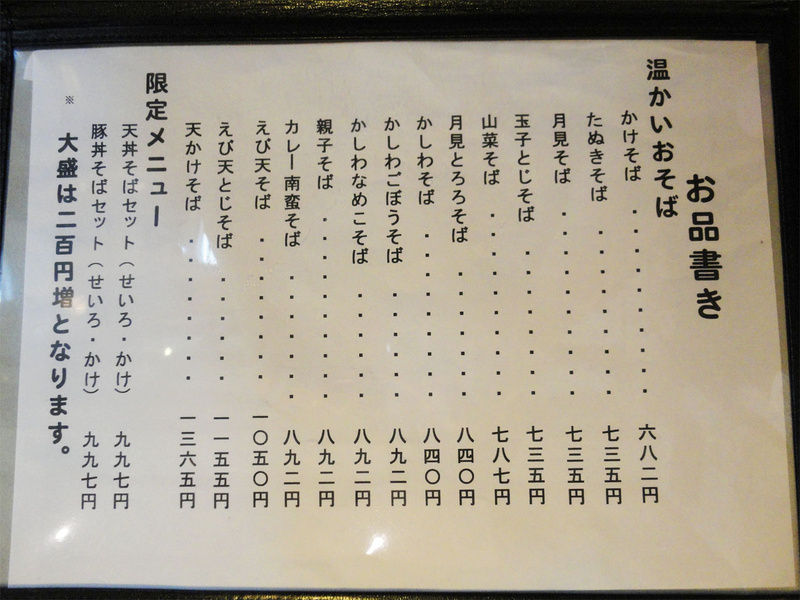 お品書き
温かいおそば
かけそば ・・・・・・・・・・ 六八二円
たぬきそば ・・・・・・・・・ 七三五円
月見そば ・・・・・・・・・・ 七三五円
玉子とじそば ・・・・・・・・ 七三五円
山菜そば ・・・・・・・・・・ 七八七円
月見とろろそば ・・・・・・・ 八四〇円
かしわそば ・・・・・・・・・ 八四〇円
かしわごぼうそば ・・・・・・ 八九二円
かしわなめこそば ・・・・・・ 八九二円
親子そば ・・・・・・・・・・ 八九二円
カレー南蛮そば ・・・・・・・ 八九二円
えび天そば ・・・・・・・・ 一〇五〇円
えび天とじそば ・・・・・・ 一一五五円
天かけそば ・・・・・・・・ 一三六五円
限定メニュー
天丼そばセット（せいろ・かけ） 九九七円
豚丼そばセット（せいろ・かけ） 九九七円
※ 大盛は二百円増となります。